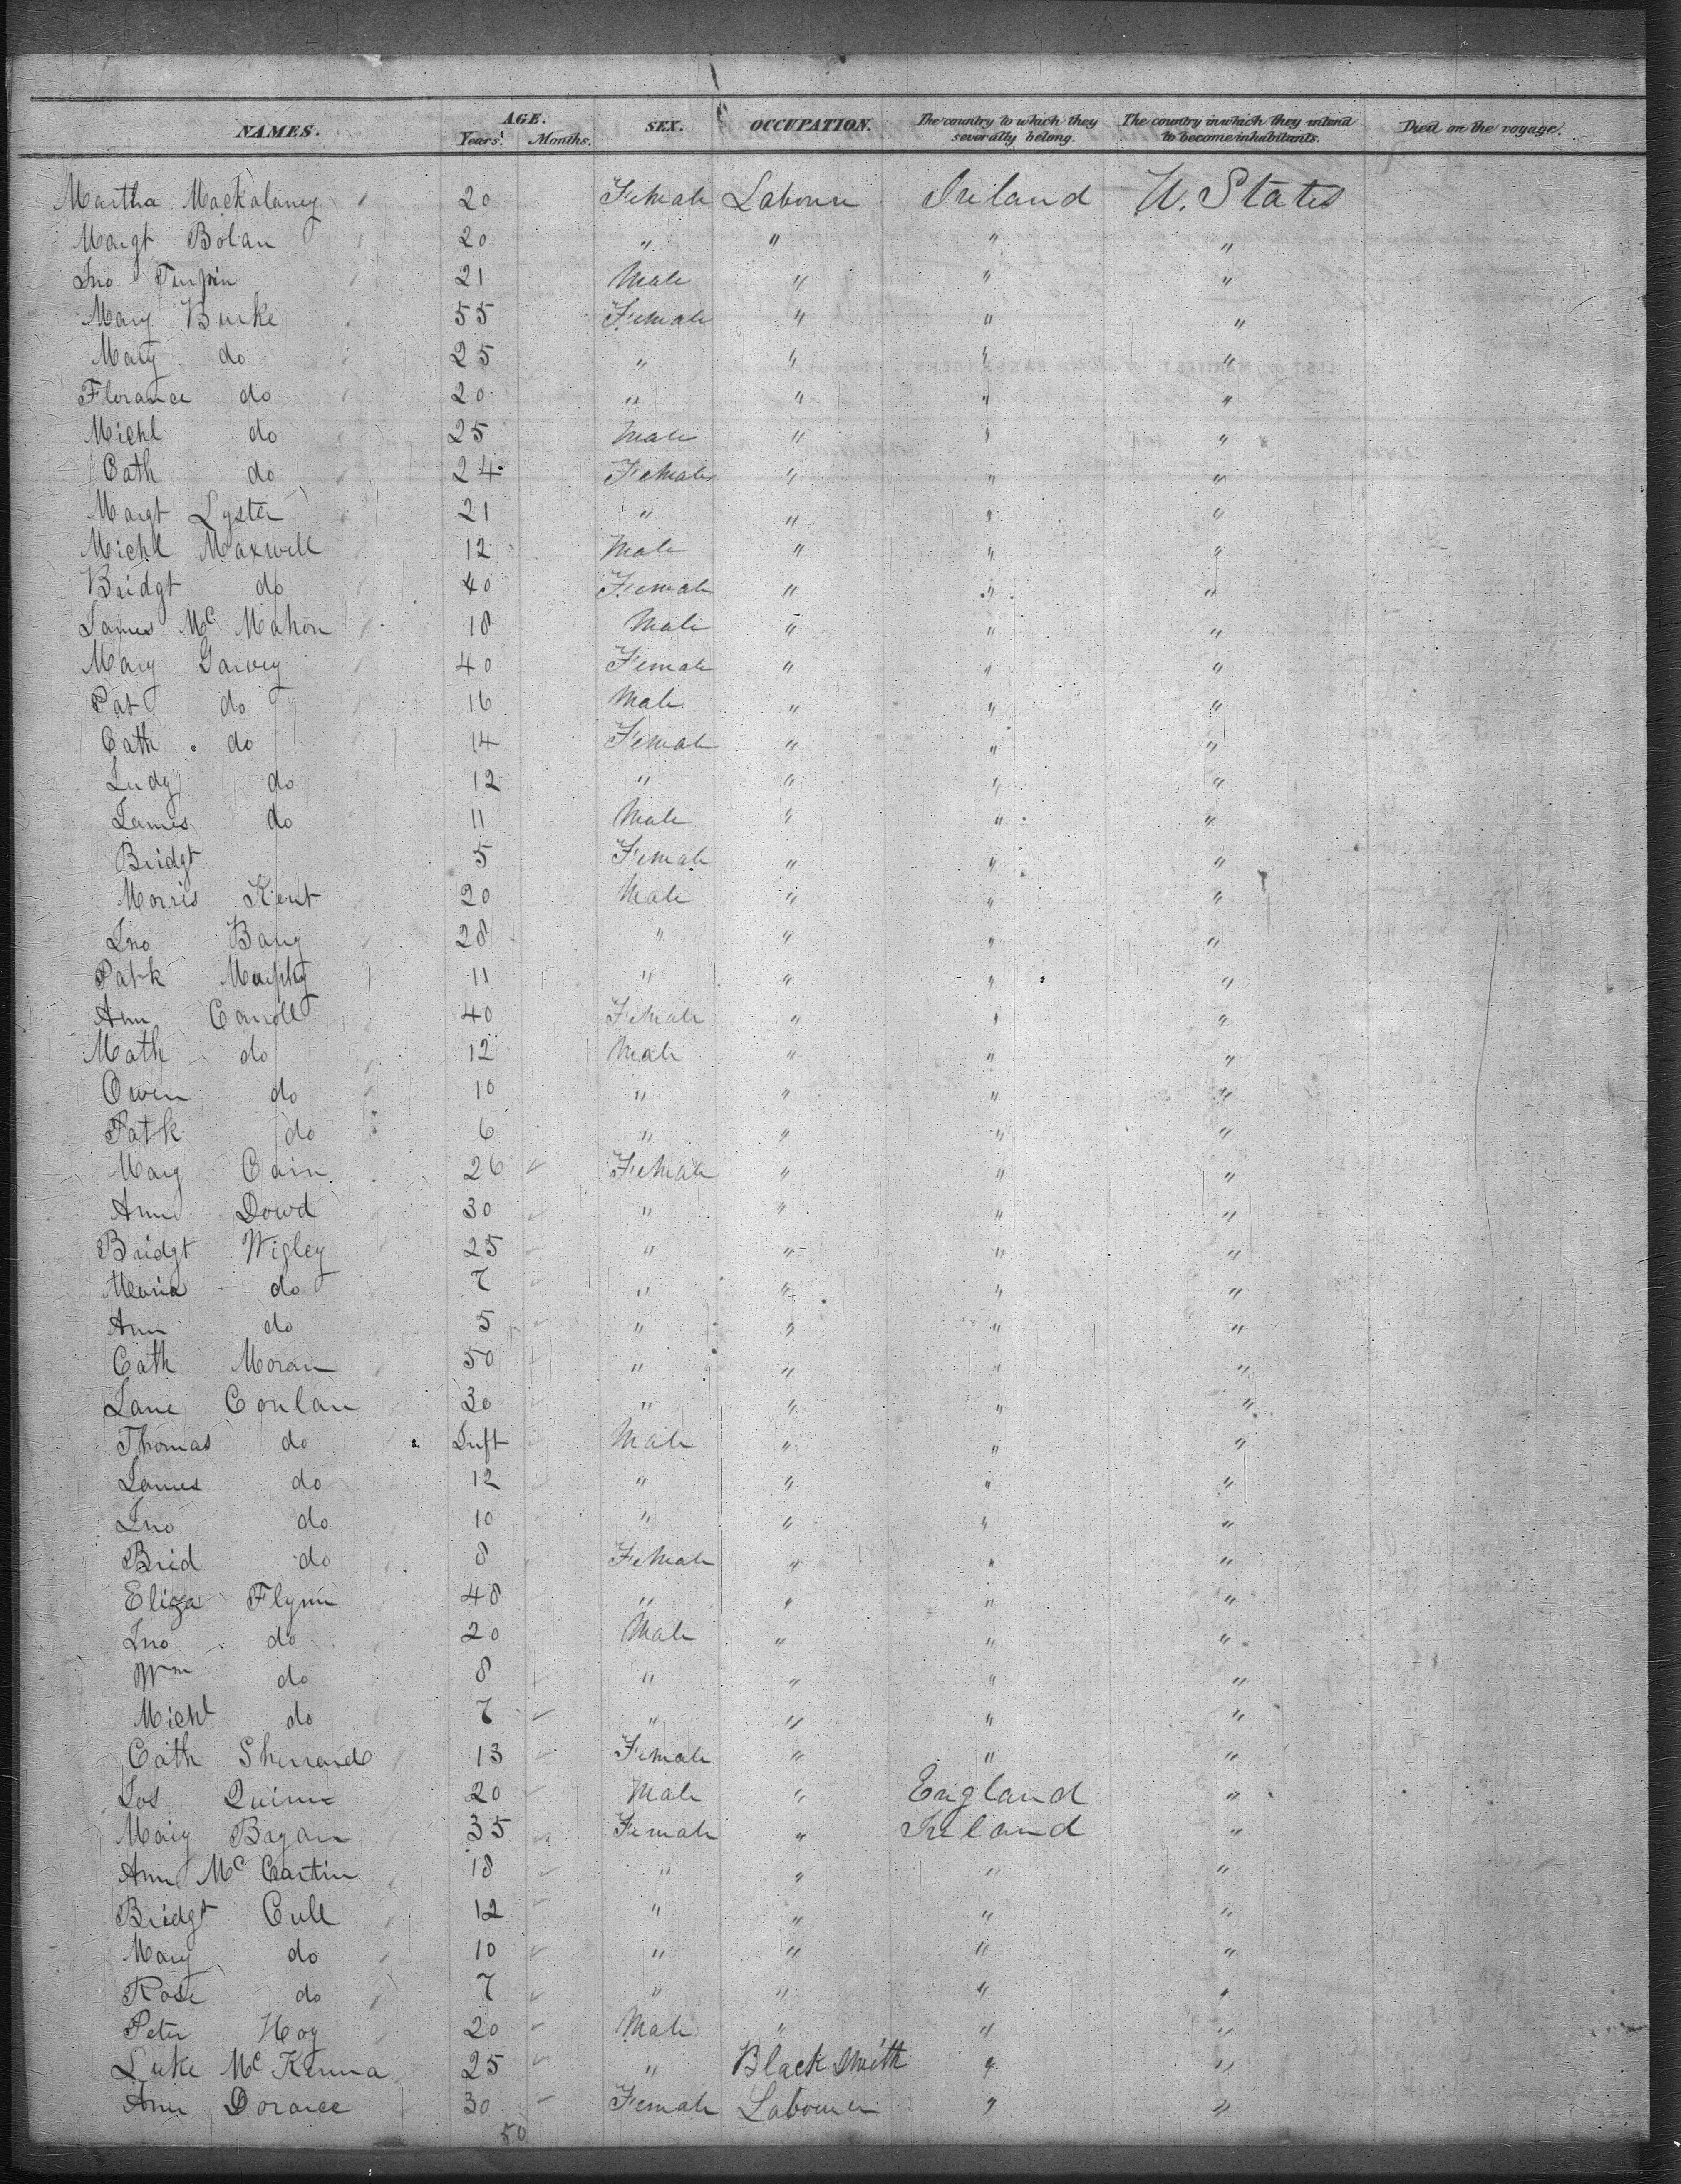 NAMES. AGE. Years. Months. SEX. OCCUPATION. The country to which they severally belong. The country in which they intend to become inhabitants. Died on the voyage.
Martha Mackalaney 20 Female Labourer Ireland U. States
Margt Bolan 20 " " " "
Jno Turpin 21 Male " " "
Mary Burke 55 Female " " "
Mary do 25 " " " "
Florance do 20 " " " "
Michl do 25 Male " " "
Cath do 24 Female " " "
Margt Lyster 21 " " " "
Michl Maxwell 12 Male " " "
Bridgt do 40 Female " " "
James Mc Mahon 18 Male " " "
Mary Garvey 40 Female " " "
Pat do 16 Male " " "
Cath do 14 Female " " "
Judy do 12 " " " "
James do 11 Male " " "
Bridgt 5 Female " " "
Morris Kent 20 Male " " "
Jno 28 " " " "
Patk Murphy 11 " " " "
Ann Carroll 40 Female " " "
Math do 12 Male " " "
Owen do 10 " " " "
Patk do 6 " " " "
Mary Cain 26 Female " " "
Ann Dowd 30 " " " "
Bridgt Wigley 25 " " " "
Maria do 7 " " " "
Ann do 5 " " " "
Cath Moran 50 " " " "
Jane Conlan 30 " " " "
Thomas do Inft Male " " "
James do 12 " " " "
Jno do 10 " " " "
Brid do 8 Female " " "
Eliza Flynn 48 " " " "
Jno do 20 Male " " "
Wm do 8 " " " "
Michl do 7 " " " "
Cath Sherrard 13 Female " " "
Jos Quinn 20 Male " England "
Mary Bagan 35 Female " Ireland "
Ann Mc Cartin 18 " " " "
Bridgt Cull 12 " " " "
Mary do 10 " " " "
Rose do 7 " " " "
Peter Hoy 20 Male " " "
Luke Mc Kenna 25 " Black Smith " "
Ann 30 Female Labourer " "
50